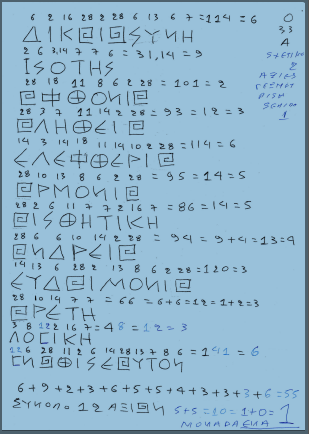 6 2 16 28 2 28 6 13 6 7 = 114 = 6
ΔΙΚΑΙΟΣΥΝΗ
2 6 3,14 7 7 6 = 31,14 = 9
ΙΣΟΤΗΣ
28 18 11 8 6 2 28 = 101 = 2
ΑΦΘΟΝΙΑ
28 3 7 11 14 2 28 = 93 = 12 = 3
ΑΛΗΘΕΙΑ
14 3 14 18 11 14 10 2 28 = 114 = 6
ΕΛΕΦΘΕΡΙΑ
28 10 13 8 6 2 28 = 95 = 14 = 5
ΑΡΜΟΝΙΑ
28 2 6 11 7 7 2 16 7 = 86 = 14 = 5
ΑΙΣΘΗΤΙΚΗ
28 6 6 10 14 2 28 = 94 = 9+4=13=4
ΑΝΔΡΕΙΑ
14 13 6 28 2 13 8 6 2 28 = 120 = 3
ΕΥΔΑΙΜΟΝΙΑ
28 10 14 7 7 = 66 = 6+6=12=1+2=3
ΑΡΕΤΗ
3 8 22 2 16 7 = 48 = 12 = 3
ΛΟΓΙΚΗ
22 6 28 11 2 6 14 28 13 7 8 6 = 141 = 6
ΓΝΩΘΙ ΣΕΑΥΤΟΝ
6+9+2+3+6+5+5+4+3+3+3+6=55
ΣΥΝΟΛΟ 12 ΑΞΙΩΝ 5+5=10=1+0=1
ΜΟΝΑΔΑ ΕΝΑ
Ο
33
Α
2
ΑΞΙΕΣ
1